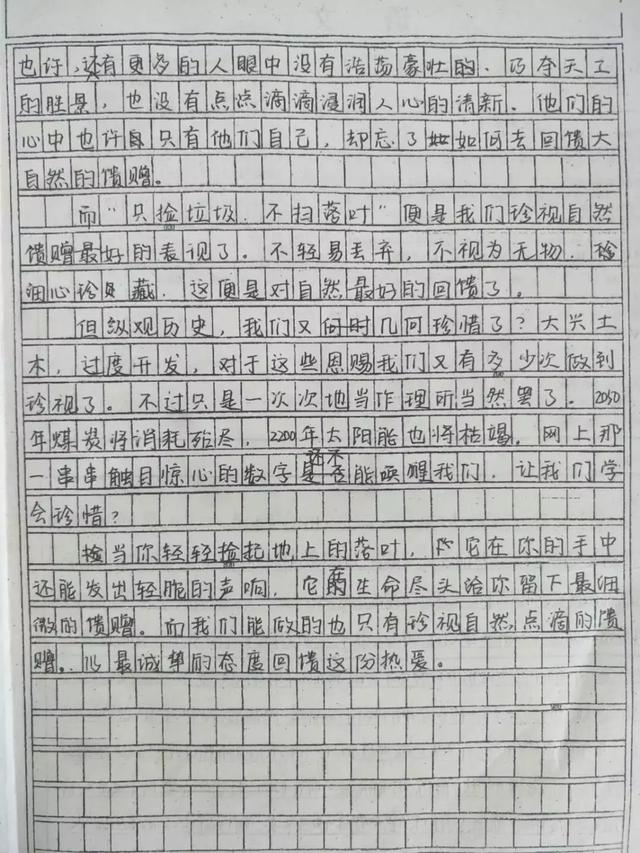 也许,还有更多的人眼中没有浩荡豪壮的、巧夺天工
的胜景,也没有点点滴滴浸润人心的清新。他们的
心中也许只有他们自己,却忘了如何去回馈大
自然的馈赠。
而“只捡垃圾,不扫落叶”便是我们珍视自然
馈赠最好的表现了。不轻易丢弃,不视为无物,捡
细心珍藏,这便是对自然最好的回馈了。
但纵观历史,我们又何时几何珍惜了?大兴土
木,过度开发,对于这些恩赐我们又有多少次做到
珍视了。不过只是一次次地当作理所当然罢了。2050
年煤炭将消耗殆尽,2200年太阳能也将枯竭。网上那
一串串触目惊心的数字还不能唤醒我们,让我们学
会珍惜?
当你轻轻捡起地上的落叶,它在你的手中
还能发出轻脆的声响,它在生命尽头给你留下最细
微的馈赠。而我们能做的也只有珍视自然,点滴的馈
赠。以最诚挚的态度回馈这份热爱。